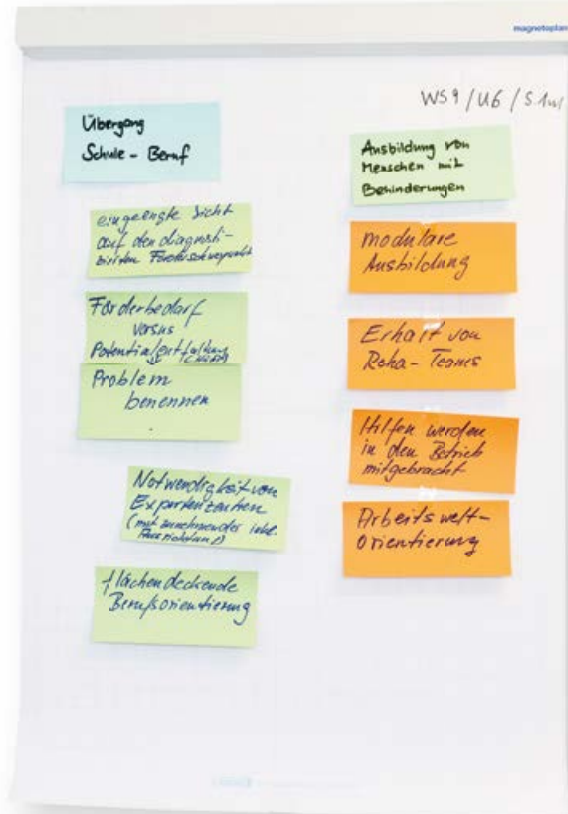 magnetoplan
WS9/U6/S.1
Übergang
Schule - Beruf
eingeengte Sicht
auf den diagnosti-
zierten Förderschwerpunkt
Förderbedarf
versus
Potentialentfaltung
Problem
benennen
Notwendigkeit von
Expertenzentren
(mit zunehmender inkl.
Ausrichtung)
flächendeckende
Berufsorientierung
Ausbildung von
Menschen mit
Behinderungen
modulare
Ausbildung
Erhalt von
Reha-Teams
Hilfen werden
in den Betrieb
mitgebracht
Arbeitswelt-
orientierung